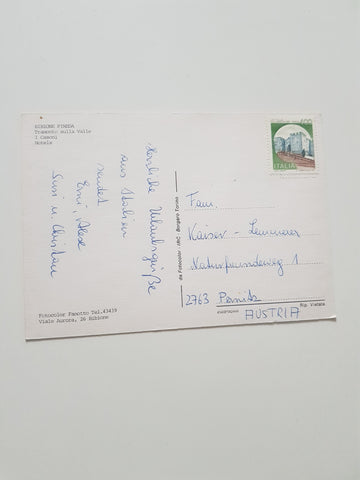 BIBIONE PINEDA
Tramonto sulla Valle
I Casoni
Notele
Herzliche Urlaubsgrüße
aus Italien
sendet
Erni, 
Susi u. Christian
Fotocolor Panotto Tel.43419
Viale Aurora, 26 Bibione
da Fotocolor
ITALIA
Fam.
Kaiser -
Naturfreundeweg 1
2763 Pernitz
AUSTRIA
Rip. Vietata